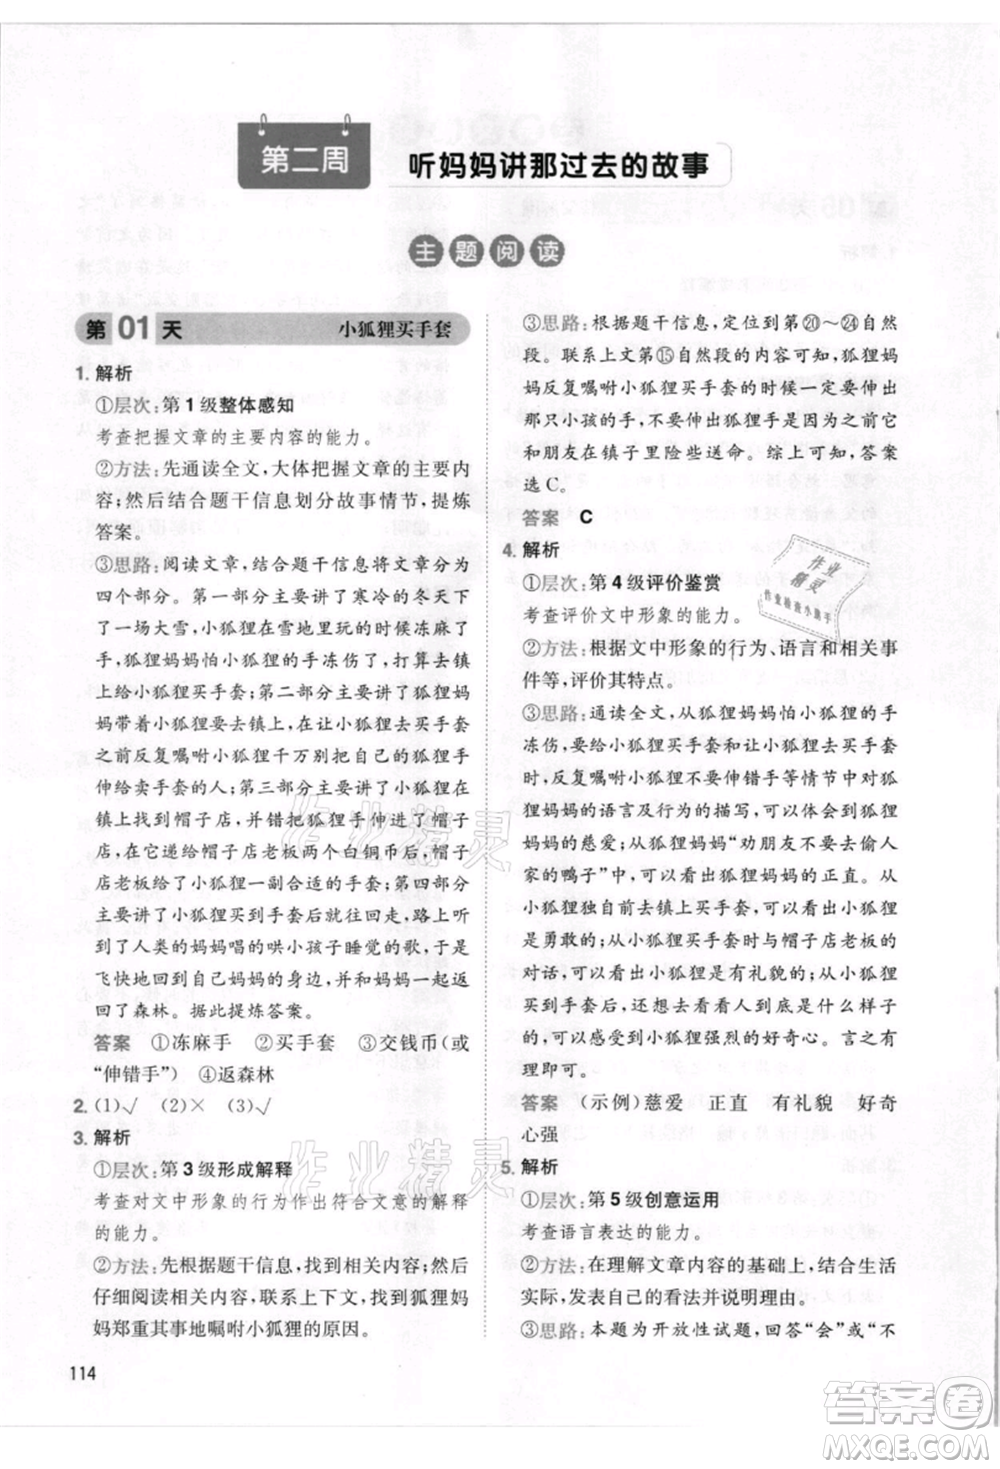 第二周
听妈妈讲那过去的故事
主题阅读
第01天 小狐狸买手套
1. 解析
①层次:第1级整体感知
考查把握文章的主要内容的能力。
②方法:先通读全文,大体把握文章的主要内
容;然后结合题干信息划分故事情节,提炼
答案。
③思路:阅读文章,结合题干信息将文章分为
四个部分。第一部分主要讲了寒冷的冬天下
了一场大雪,小狐狸在雪地里玩的时候冻麻
了手,狐狸妈妈怕小狐狸的手冻伤了,打算去镇
上给小狐狸买手套;第二部分主要讲了狐狸妈
妈带着小狐狸要去镇上,在让小狐狸去买手套
之前反复嘱咐小狐狸千万别把自己的狐狸手
伸给卖手套的人;第三部分主要讲了小狐狸在
镇上找到了帽子店,并错把狐狸手伸进了帽子
店,在它递给帽子店老板两个白铜币后,帽子
店老板给了小狐狸一副合适的手套;第四部分
主要讲了小狐狸买到手套后就往回走,路上听
到了人类的妈妈唱的哄小孩子睡觉的歌,于是
飞快地跑到了妈妈的身边,并和妈妈一起返
回了森林。据此提炼答案。
答案 ①冻麻手 ②买手套 ③交钱币(或
“伸错手”) ④返森林
2. (1)√ (2)× (3)√
3. 解析
①层次:第3级形成解释
考查对文中形象的行为作出符合文意的解释
的能力。
②方法:先根据题干信息,找到相关内容;然后
仔细阅读相关内容,联系上下文,找到狐狸妈
妈郑重其事地嘱咐小狐狸的原因。
③思路:根据题干信息,定位到第⑳~㉔自然
段。联系上文第⑮自然段的内容可知,狐狸妈
妈反复嘱咐小狐狸买手套的时候一定要伸出
那只小孩的手,不要伸出狐狸手是因为之前它
和朋友在镇子里险些送命。综上可知,答案
选C。
答案 C
4. 解析
①层次:第4级评价鉴赏
考查评价文中形象的能力。
②方法:根据文中形象的行为、语言和相关事
件等,评价其特点。
③思路:通读全文,从狐狸妈妈怕小狐狸的手
冻伤,要给小狐狸买手套和让小狐狸去买手套
前,反复嘱咐小狐狸不要伸错手等情节中对狐
狸妈妈的语言及行为的描写,可以体会到狐狸
妈妈的慈爱;从狐狸妈妈“劝朋友不要偷人
家的鸭子”可以体会到狐狸妈妈的正直。从小
狐狸独自前去镇上买手套,可以看出小狐狸
是勇敢的;从小狐狸买手套时与帽子店老板的
对话,可以看出小狐狸是有礼貌的;从小狐狸
买到手套后,还想去看看人到底是什么样子
的,可以看出小狐狸强烈的好奇心。言之有
理即可。
答案 (示例)慈爱 正直 有礼貌 好奇
心强
5. 解析
①层次:第5级创意运用
考查语言表达的能力。
②方法:在理解文章内容的基础上,结合生活
实际,发表自己的看法并说明理由。
③思路:本题为开放性试题,回答“会”或“不
114
作业精灵
作业检查小助手
作业精灵
作业精灵
答案卷
MXQE.COM